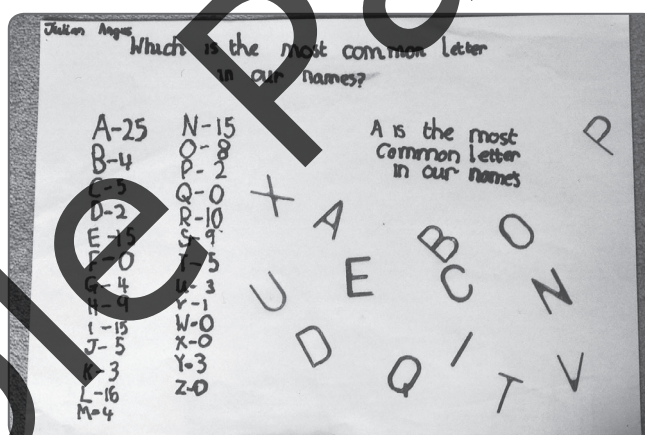 Julian Angus
Which is the most common letter
in our names?
A-25
B-4
C-5
D-2
E-15
F-0
G-4
H-9
I-15
J-5
K-3
L-16
M-4
N-15
O-8
P-2
Q-0
R-10
S-9
T-5
U-3
V-1
W-0
X-0
Y-3
Z-0
A is the most
common letter
in our names
P
X
A
B
O
U
E
C
N
D
Q
I
T
V